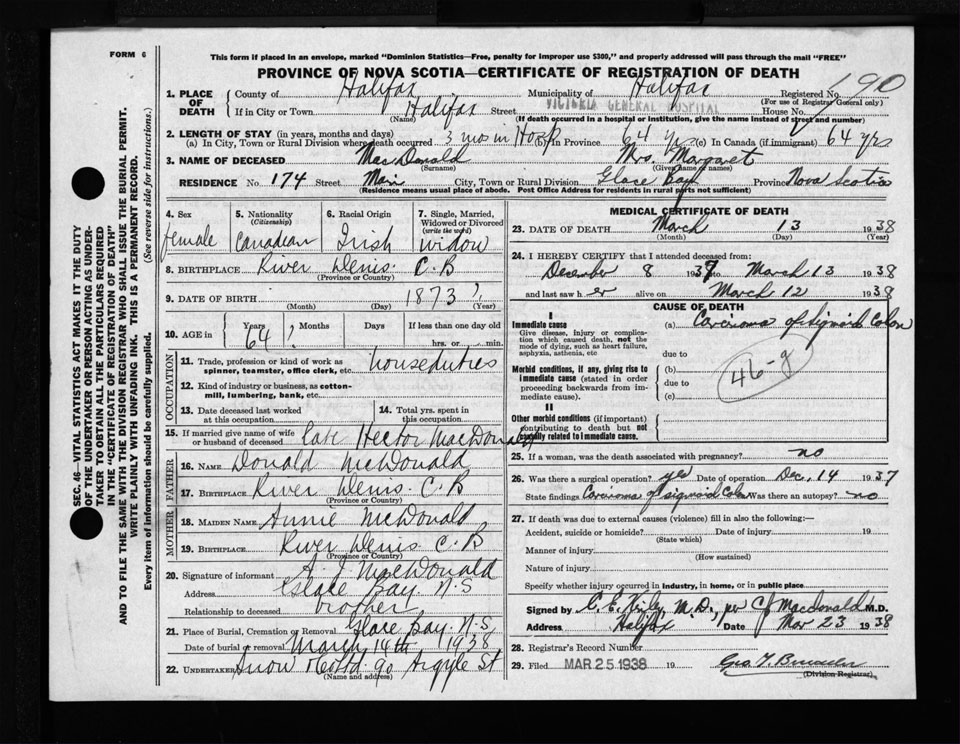 FORM 6
This form if placed in an envelope, marked "Dominion Statistics—Free, penalty for improper use $300," and properly addressed will pass through the mail "FREE"
PROVINCE OF NOVA SCOTIA—CERTIFICATE OF REGISTRATION OF DEATH
1. PLACE OF DEATH County of Halifax Municipality of Halifax Registered No. 910
(For use of Registrar General only)
If in City or Town Halifax Street VICTORIA GENERAL HOSPITAL House No.
(Name) (If death occurred in a hospital or institution, give the name instead of street and number)
2. LENGTH OF STAY (in years, months and days)
(a) In City, Town or Rural Division where death occurred 3 mos in Hosp (b) In Province 64 yrs (c) In Canada (if immigrant) 64 yrs
3. NAME OF DECEASED MacDonald Mrs. Margaret
(Surname) (Given name or names)
RESIDENCE No. 174 Street Main City, Town or Rural Division Glace Bay Province Nova Scotia
(Residence means usual place of abode. Post Office Address for residents in rural parts not sufficient)
4. Sex female
5. Nationality (Citizenship) Canadian
6. Racial Origin Irish
7. Single, Married, Widowed or Divorced (write the word) widow
8. BIRTHPLACE River Denis. C. B
(Province or Country)
9. DATE OF BIRTH 1873 ?
(Month) (Day) (Year)
10. AGE in Years Months Days If less than one day old
64 ? hrs. or min.
OCCUPATION
11. Trade, profession or kind of work as spinner, teamster, office clerk, etc. houseduties
12. Kind of industry or business, as cotton-mill, lumbering, bank, etc.
13. Date deceased last worked at this occupation
14. Total yrs. spent in this occupation
15. If married give name of wife or husband of deceased late Hector MacDonald
FATHER
16. NAME Donald McDonald
17. BIRTHPLACE River Denis. C. B
(Province or Country)
MOTHER
18. MAIDEN NAME Annie McDonald
19. BIRTHPLACE River Denis C. B
(Province or Country)
20. Signature of informant A. J. MacDonald
Address Glace Bay. N. S
Relationship to deceased brother
21. Place of Burial, Cremation or Removal Glace Bay. N. S
Date of burial or removal March 14th 1938
22. UNDERTAKER Snow & Co Ltd 90 Argyle St
(Name and address)
MEDICAL CERTIFICATE OF DEATH
23. DATE OF DEATH March 13 1938
(Month) (Day) (Year)
24. I HEREBY CERTIFY that I attended deceased from:
December 8 1937 to March 13 1938
and last saw her alive on March 12 1938
CAUSE OF DEATH
I
Immediate cause
Give disease, injury or complication which caused death, not the mode of dying, such as heart failure, asphyxia, asthenia, etc
(a) Carcinoma of sigmoid Colon
due to
Morbid conditions, if any, giving rise to immediate cause (stated in order proceeding backwards from immediate cause).
(b)
due to
(c)
46-g
II
Other morbid conditions (if important) contributing to death but not causally related to immediate cause.
25. If a woman, was the death associated with pregnancy? no
26. Was there a surgical operation? yes Date of operation Dec. 14 1937
State findings Carcinoma of sigmoid Colon Was there an autopsy? no
27. If death was due to external causes (violence) fill in also the following:—
Accident, suicide or homicide? Date of injury 19
(State which)
Manner of injury
(How sustained)
Nature of injury
Specify whether injury occurred in industry, in home, or in public place
Signed by C. E. M.D., per C J Macdonald M.D.
Address Halifax Date Mar 23 1938
28. Registrar's Record Number
29. Filed MAR 25 1938 19
Geo. T.
(Division Registrar)
SEC. 46—VITAL STATISTICS ACT MAKES IT THE DUTY
OF THE UNDERTAKER OR PERSON ACTING AS UNDER-
TAKER TO OBTAIN ALL THE PARTICULARS REQUIRED
IN THE "CERTIFICATE OF REGISTRATION OF DEATH"
AND TO FILE THE SAME WITH THE DIVISION REGISTRAR WHO SHALL ISSUE THE BURIAL PERMIT.
WRITE PLAINLY WITH UNFADING INK. THIS IS A PERMANENT RECORD.
Every item of information should be carefully supplied. (See reverse side for instructions.)